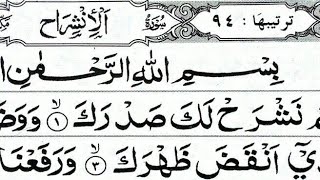 ترتيبها : ٩٤ سُوْرَةُ اَلْاِنْشِرَاح
بِسْمِ اللهِ الرَّحْمٰنِ
نَشْرَحْ لَكَ صَدْرَكَ ۙ﴿١﴾
اَنْقَضَ ظَهْرَكَ ۙ﴿٣﴾ وَرَفَعْنَا